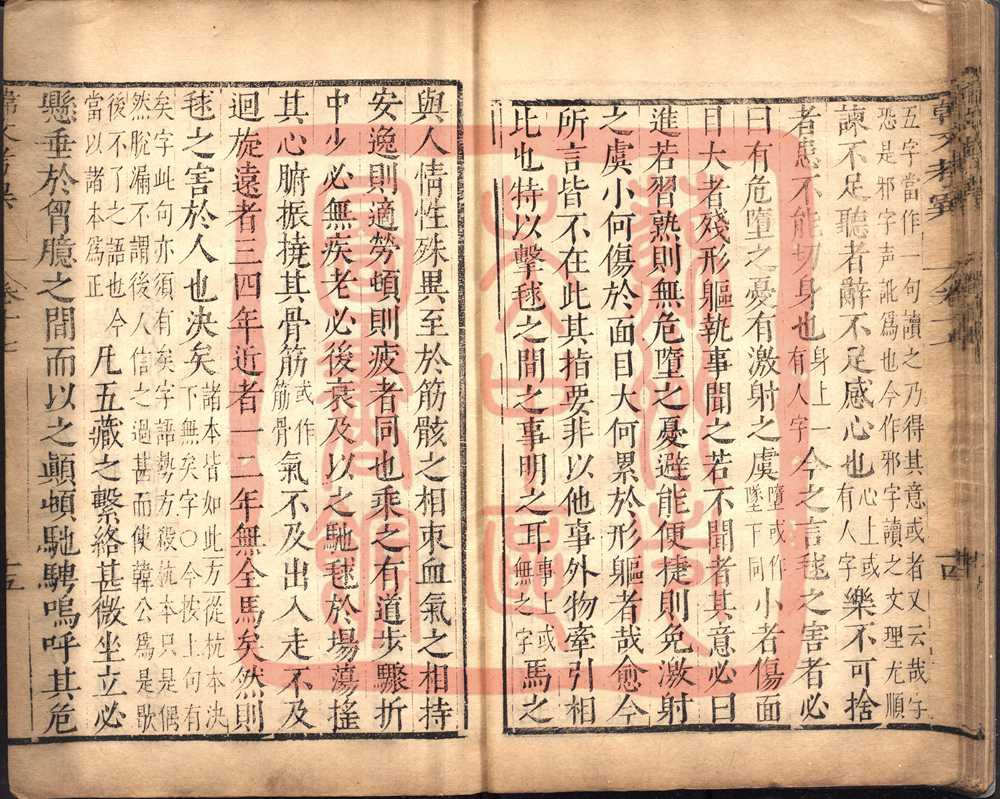 五字當作一句讀之乃得其意或者又云哉字
恐是邪字声訛爲也今作邪字讀之文理尤順
諫不足聽者辭不足感心也有人字心上或樂不可捨
者患不能切身也身上一有人字今之言毬之害者必
曰有危墮之憂有激射之虞墮或作墜下同小者傷面
目大者殘形軀執事聞之若不聞者其意必曰
進若習熟則無危墮之憂避能便捷則免激射
之虞小何傷於面目大何累於形軀者哉愈今
所言皆不在此其指要非以他事外物牽引相
比也特以擊毬之間之事明之耳事上或無之字馬之
與人情性殊異至於筋骸之相束血氣之相持
安逸則適勞頓則疲者同也乘之有道步驟折
中少必無疾老必後衰及以之馳毬於場蕩搖
其心腑振撓其骨筋或作筋骨氣不及出入走不及
迴旋遠者三四年近者一二年無全馬矣然則
毬之害於人也決矣諸本皆如此方從杭本決下無矣字〇今按上句有
矣字此句亦須有矣字語勢方殺杭本只是偶
然脫漏不謂後人信之過甚而使韓公爲是歇
後不了之語也今當以諸本爲正凡五藏之繫絡甚微坐立必
懸垂於胷臆之間而以之顛頓馳騁嗚呼其危